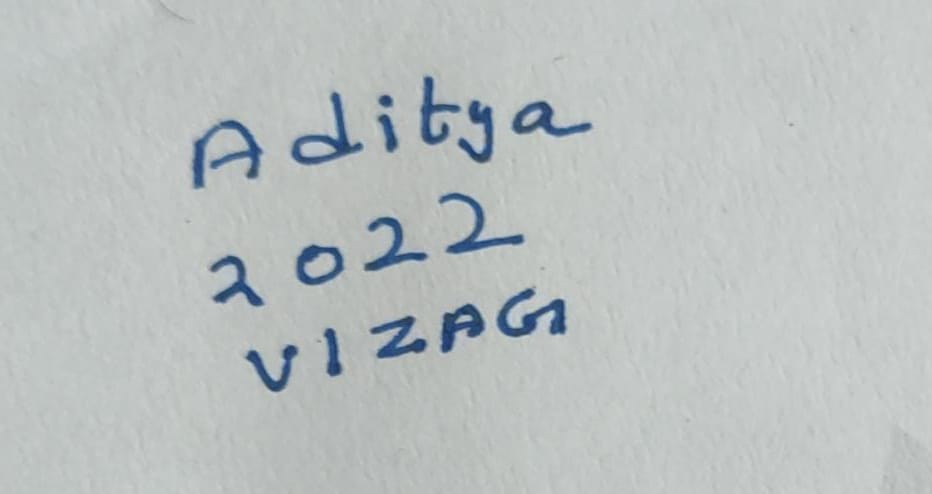 Aditya
2022
VIZAG